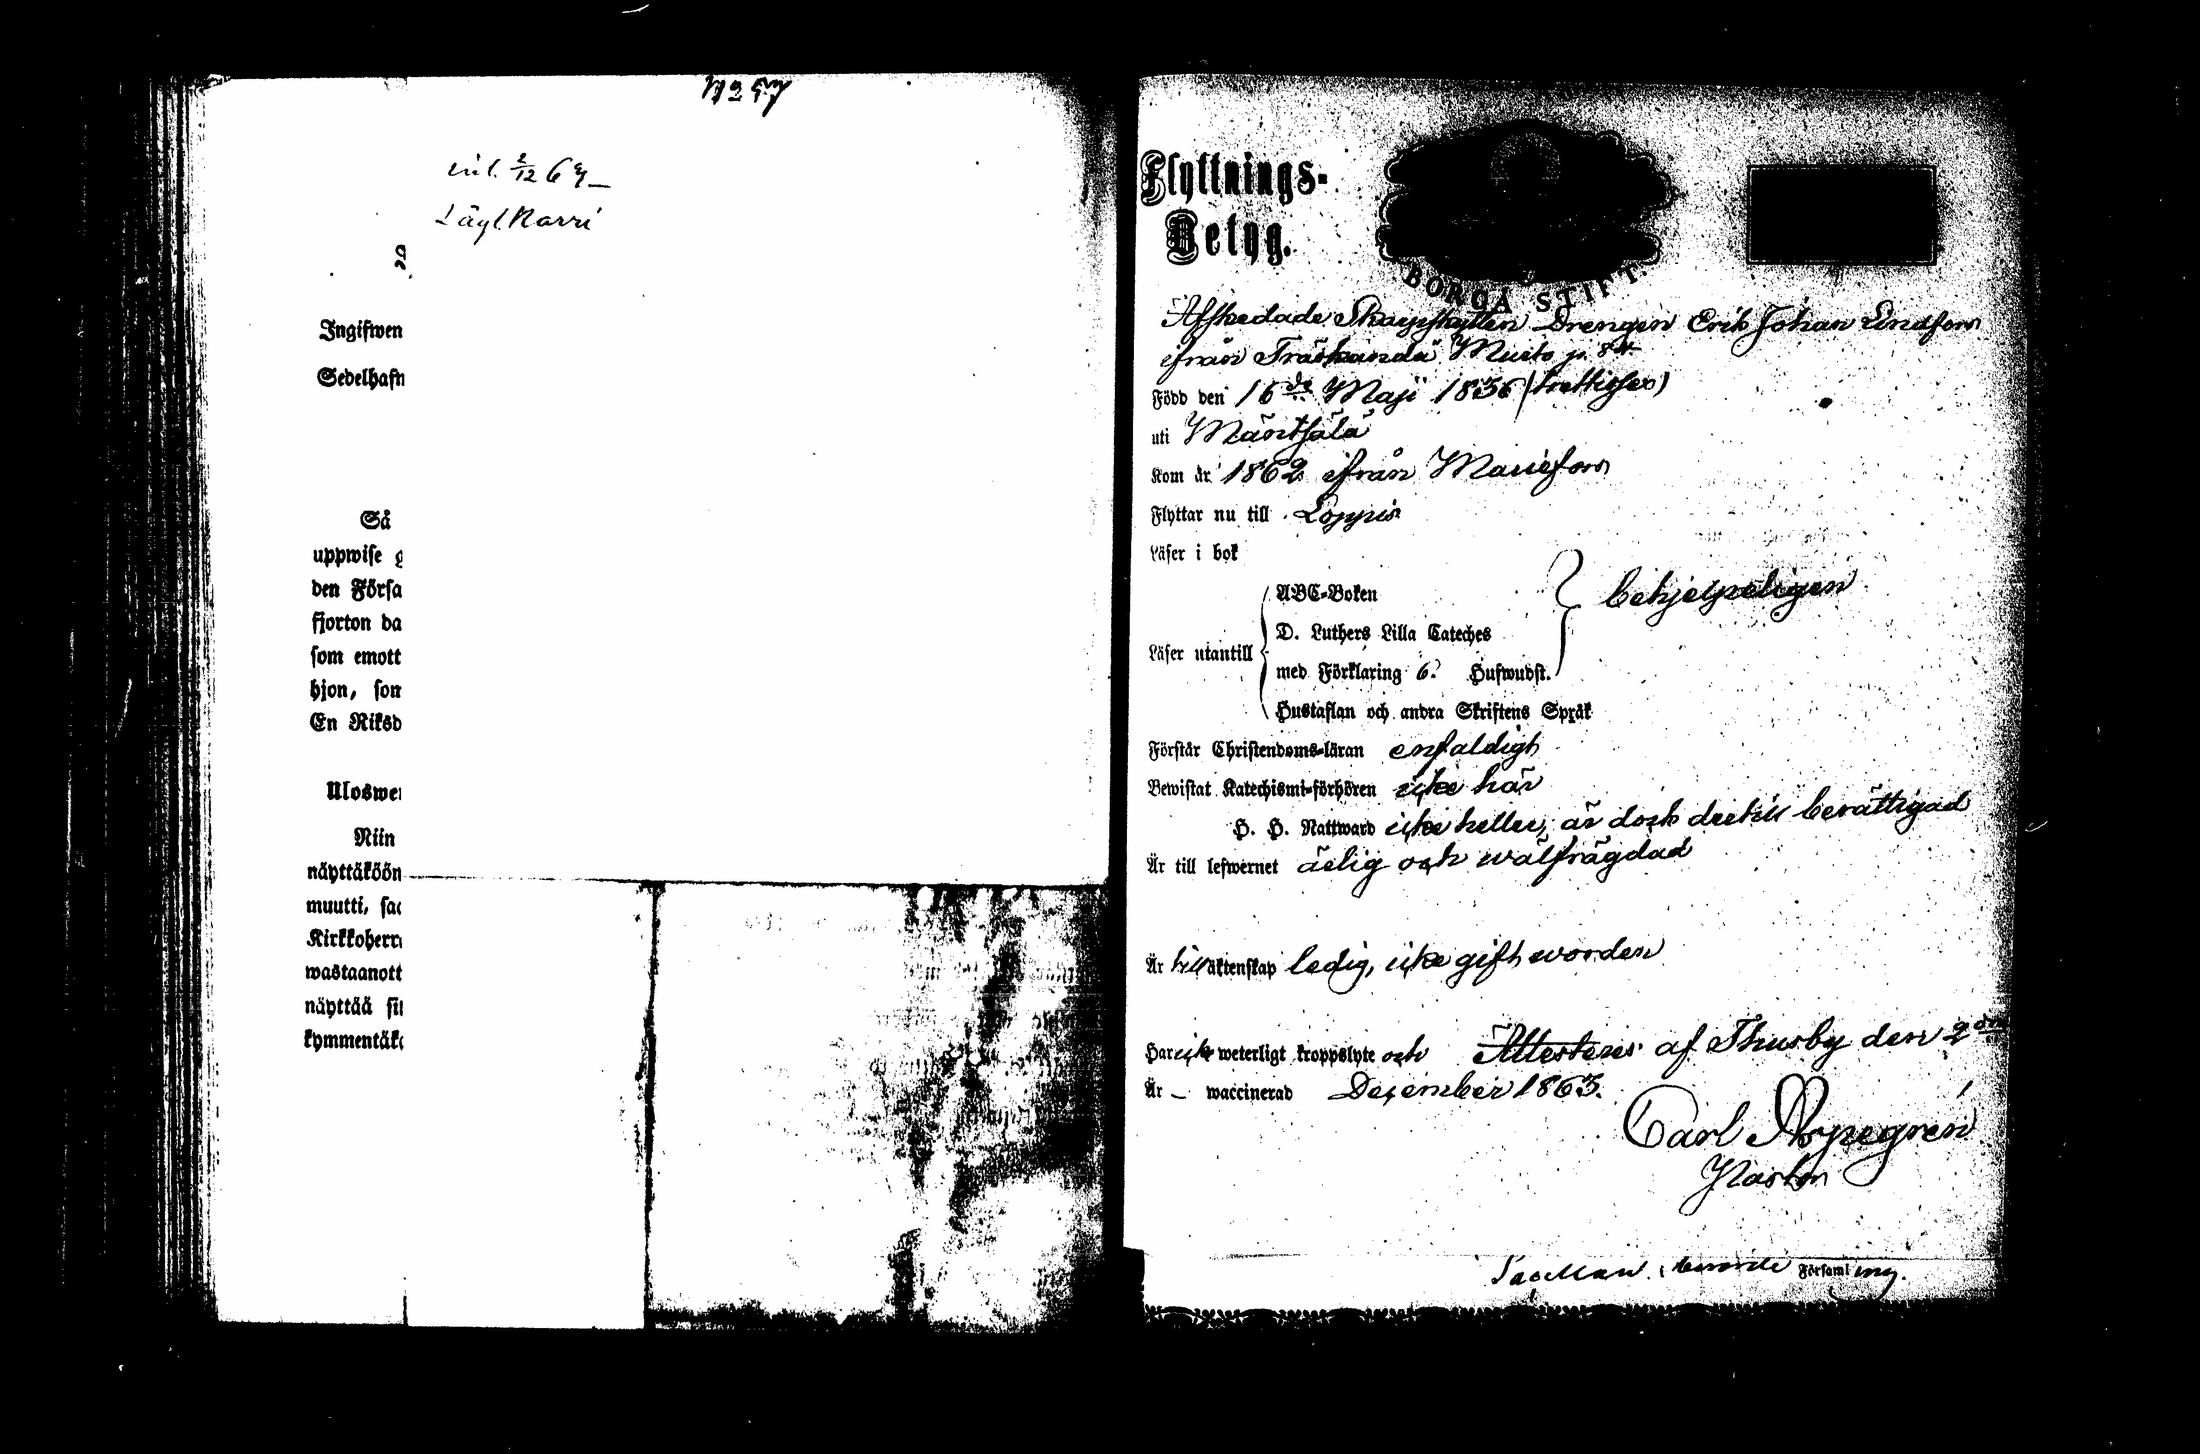 N:o 57
inl. 2/12 64
Lägl. Narri
Ingifwen
Sedelhafn
Så
uppwise g
den Försa
fjorton da
som emott
hjon, som
En Riksd
Uloswe
Niin
näyttäköön
muutti, saa
Kirkkoherr
wastaanott
näyttää sii
kymmentäko
Flyttnings-
Betyg.
BORGÅ STIFT.
Afskedade Skarpskytten Drengen Erik Johan Lindfors
ifrån Träskända Muito p. 84
Född den 16de Maji 1836 (trettiosex)
uti Mäntsälä
Kom år 1862 ifrån Mariefors
Flyttar nu till Loppis
Läser i bok
ABC-Boken
behjelpeligen
D. Luthers Lilla Cateches
Läser utantill
med Förklaring 6. Hufwudst.
Hustaflan och andra Skriftens Språk
Förstår Christendoms-läran enfaldigt
Bewistat Katechismi-förhören icke här
H. H. Nattward icke heller, är dock dertill berättigad
Är till lefwernet ärlig och wälfrägdad
Är till äktenskap ledig, icke gift worden
Har icke weterligt kroppslyte och Attesteras af Thusby den 2dra
Är – waccinerad December 1863.
Carl
Pastor
Församling.